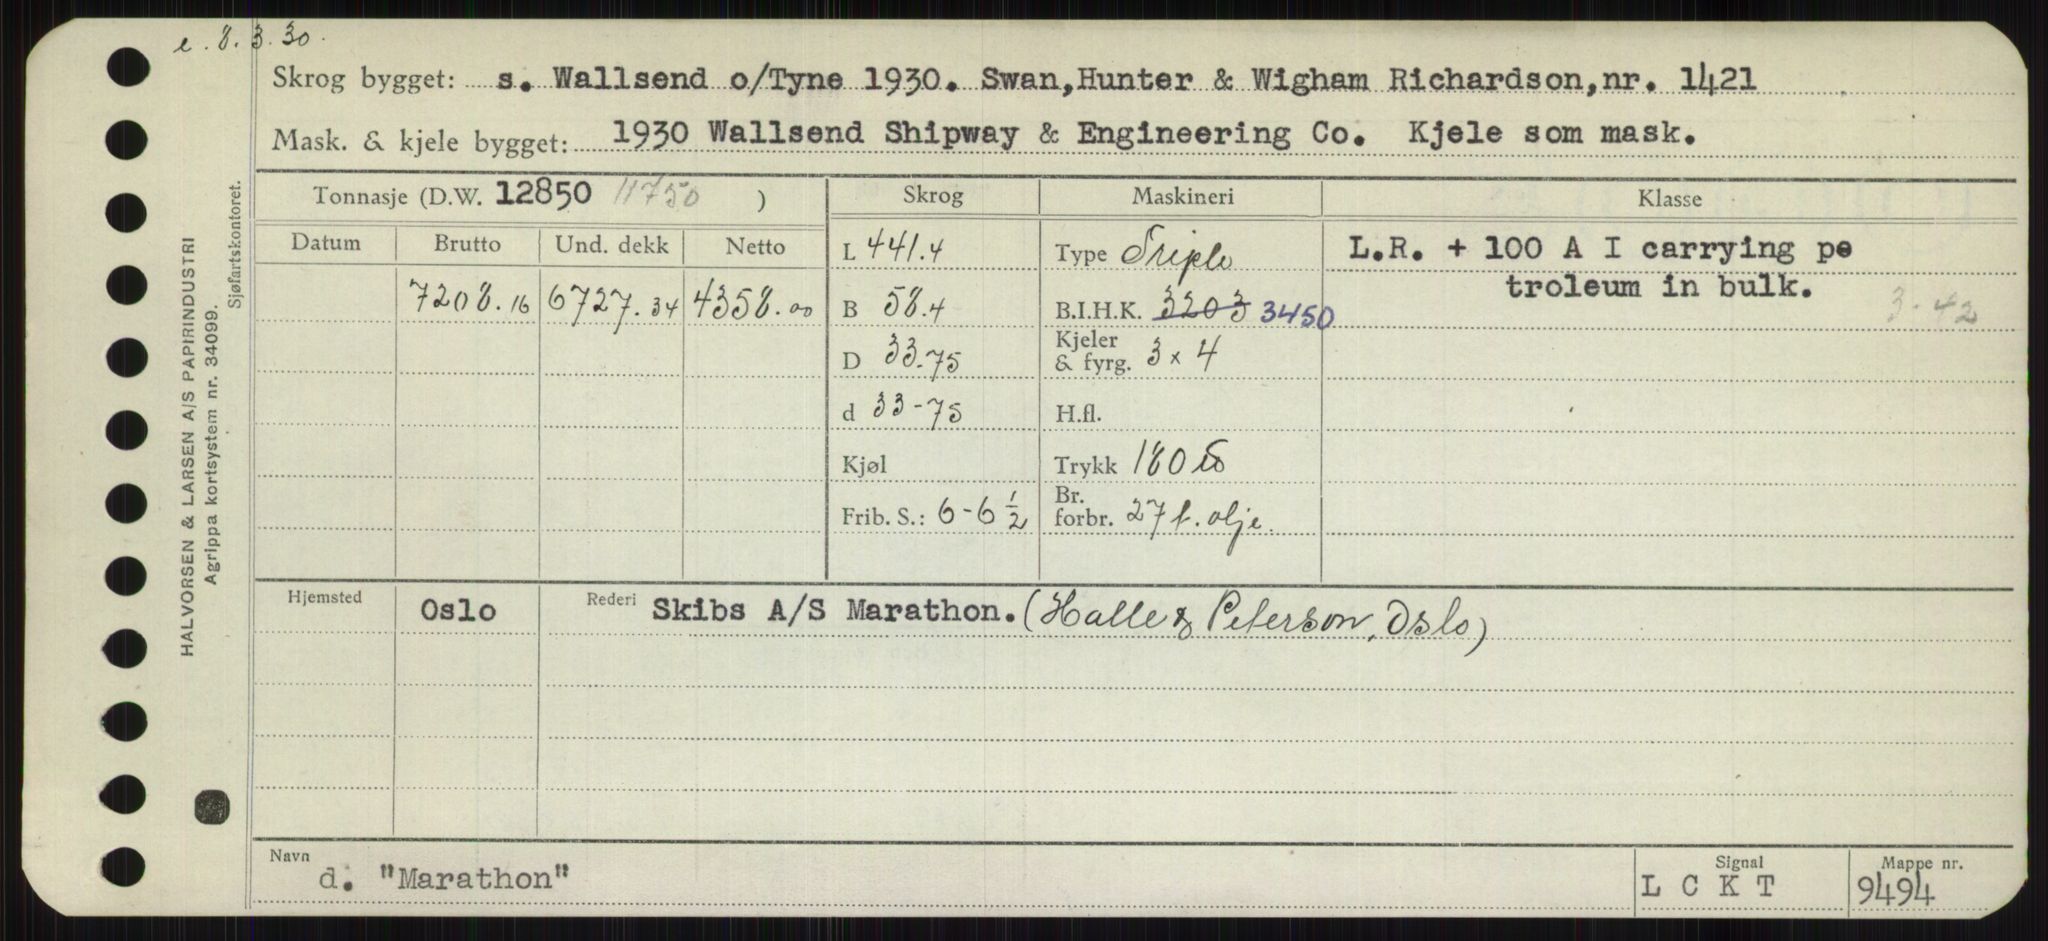 e. 8. 3. 30.
Skrog bygget: s. Wallsend o/Tyne 1930. Swan,Hunter & Wigham Richardson,nr. 1421
Mask. & kjele bygget: 1930 Wallsend Shipway & Engineering Co. Kjele som mask.
Tonnasje (D.W. 12850 11750 ) Skrog Maskineri Klasse
Datum Brutto Und. dekk Netto L 441.4 Type Triple L.R. + 100 A I carrying pe
troleum in bulk.
7208.16 6727.34 4358.00 B 58.4 B.I.H.K. 3203 3450 3-42
D 33-75 Kjeler & fyrg. 3 x 4
d 33-75 H.fl.
Kjøl Trykk 180 lb
Frib. S.: 6-6 1/2 Br. forbr. 27 t. olje.
Hjemsted Oslo Rederi Skibs A/S Marathon. (Halle & Peterson, Oslo)
Navn d. "Marathon" Signal L C K T Mappe nr. 9494
HALVORSEN & LARSEN A/S PAPIRINDUSTRI
Agrippa kortsystem nr. 34099.
Sjøfartskontoret.